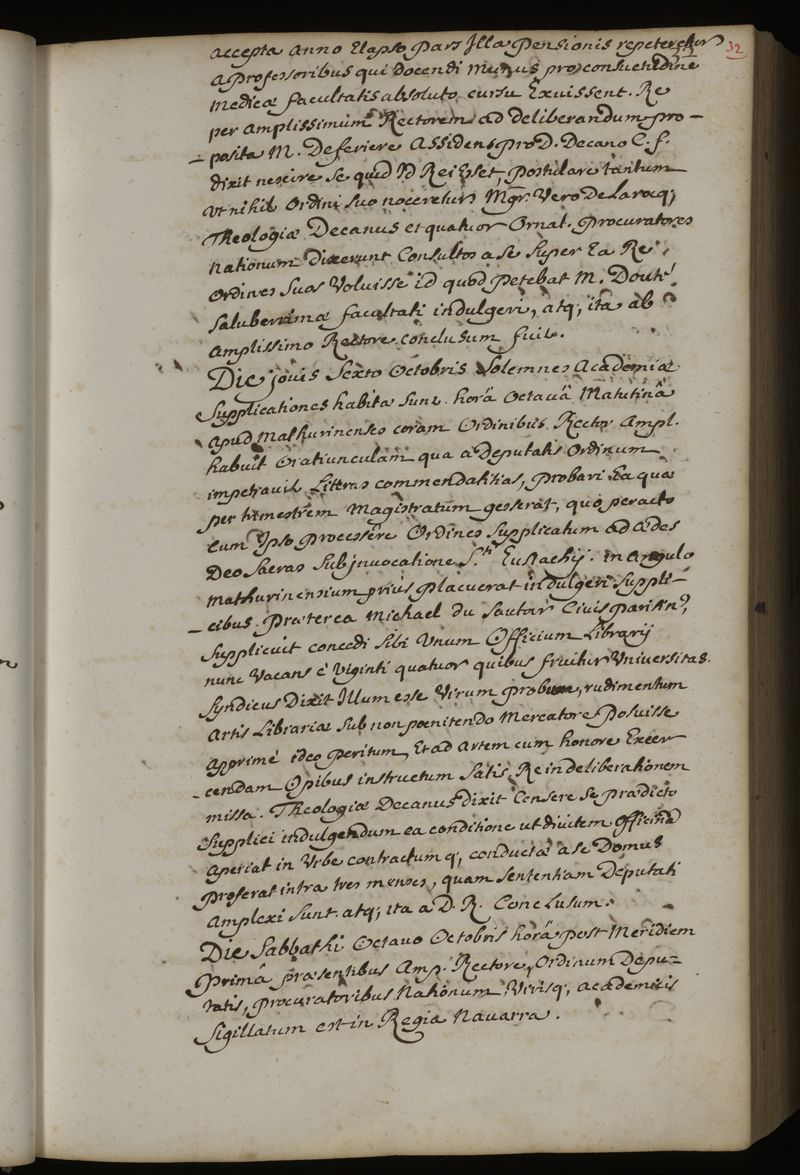 32
accepta anno Elapso pars Illa Pensionis repeteretur
a Professoribus qui docendi Munus pro consuetudine
Medicæ facultatis absoluto cursu Exuissent. Re
per amplissimum Rectorem ad deliberandum pro-
-posita M. De feriere assidens pro D. Decano C. f.
dixit nescire se quid Id Rei Esset, postulare tantum
ut nihil Ordini suo noceretur Mgr. Vero De Larocq;
Theologiæ Decanus et quatuor Ornat. Procuratores
Nationum Dixerunt Consultos a se super Ea Re
Ordines Suos Voluisse id quod petebat M. Douté
Saluberrimæ facultati indulgeri, atq; ita ab
amplissimo Rectore conclusum fuit.
Die jovis Sexto Octobris Solemnes Academiæ
Supplicationes habitæ sunt. horâ Octavâ Matutinâ
apud Mathurinenses coram Ordinibus. Rector Ampl.
habuit Oratiunculam qua a Deputatis Ordinum
impetravit Litteras commendatitias, probari Ea quæ
per trimestrem Magistratum gesserat, quo peracto
cum Ipso processêre Ordines Supplicatum ad ædes
Deo Sacras Sub jnvocatione S.ti Eustachij. in Angulo
Mathurinensium priùs placuerat indulgeri Suppli-
-cibus. Præterea Michael du Sautoir Civis parisin9,
Supplicuit concedi sibi Unum Officium Librarij
nunc Vacans è Viginti quatuor quibus fruitur Universitas.
Syndicus Dixit Illum esse Virum probum, rudimentum
artis Librariæ sub non pœnitendo Mercatore Posuisse
apprimé ideo peritum, Et ad artem cum honore Exer-
-cendam Opibus instructum satis. Re in deliberationem
missa. Theologiæ Decanus dixit Censere se prædicto
Supplici indulgendum ea conditione ut divitem Officinâ
aperiat in Vrbe contractum q; conductæ a se Domus
proferat intra tres menses, quam sententiam Deputati
amplexi sunt. atq; ita a D. R. Conclusum.
Die Sabbathi Octavo Octobris horâ post Meridiem
Primâ præsentibus Amp. Rectore, Ordinum Depu-
tatis, Procuratoribus Nationum Virisq; academicis
Sigillatum est in Regia Navarra.